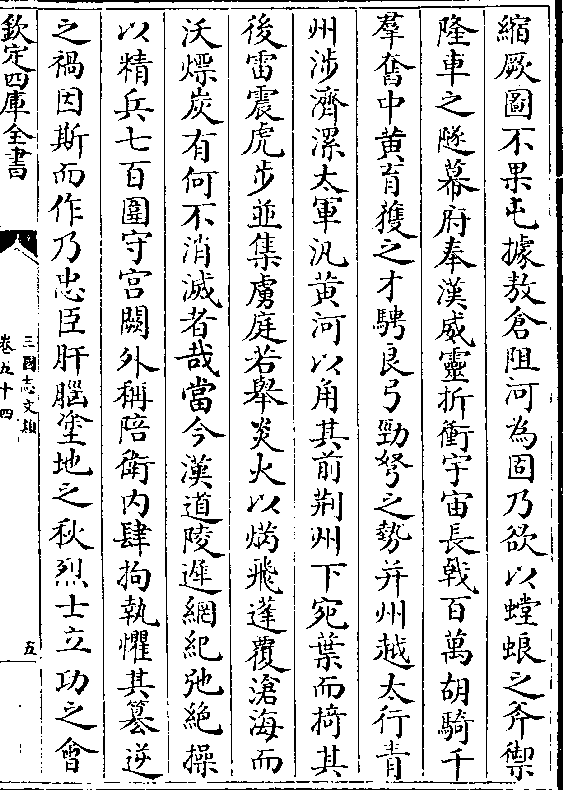 縮厥圖不果屯據敖倉阻河為固乃欲以螳蜋之斧禦
隆車之隧幕府奉漢威靈折衝宇宙長戟百萬胡騎千
羣奮中黄育獲之才騁良弓勁弩之勢并州越太行青
州涉濟漯大軍汎黄河以角其前荆州下宛葉而掎其
後雷震虎步並集虜庭若舉炎火以焫飛蓬覆滄海而
沃熛炭有何不消滅者哉當今漢道陵遲網紀弛絶操
以精兵七百圍守宫闕外稱陪衛内肆拘執懼其簒逆
之禍因斯而作乃忠臣肝腦塗地之秋烈士立功之會
欽定四庫全書
三國志文類
卷五十四
五